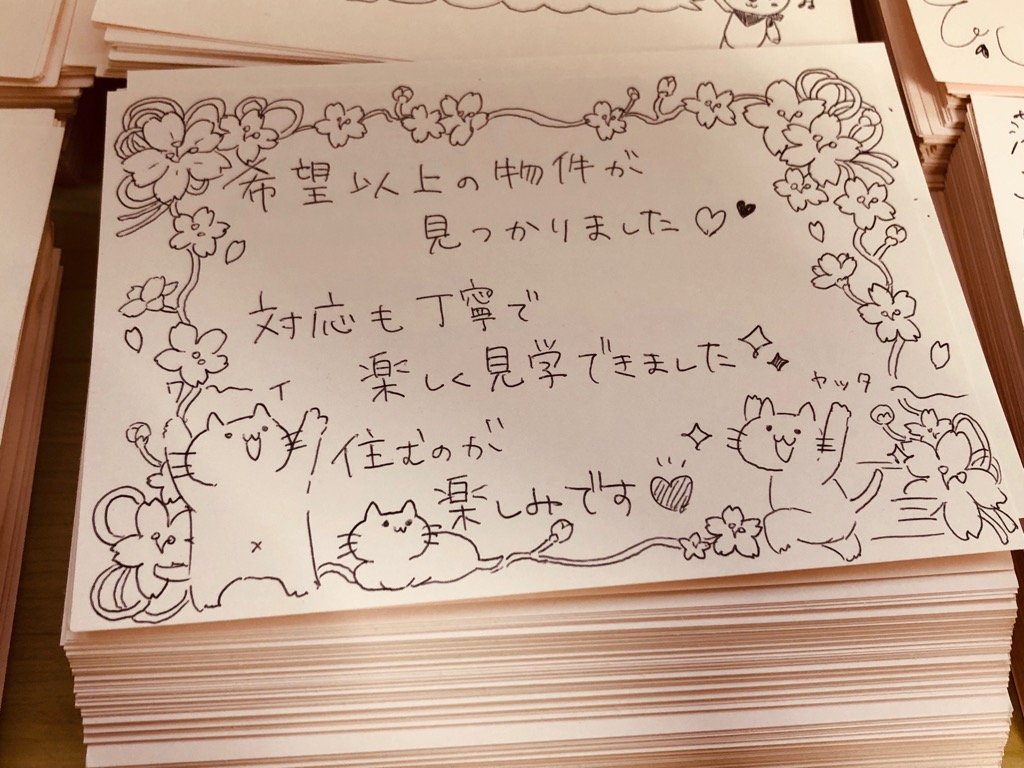 希望以上の物件が
見つかりました♡♥
対応も丁寧で
楽しく見学できました
ワーイ
ヤッタ
住むのが
楽しみです